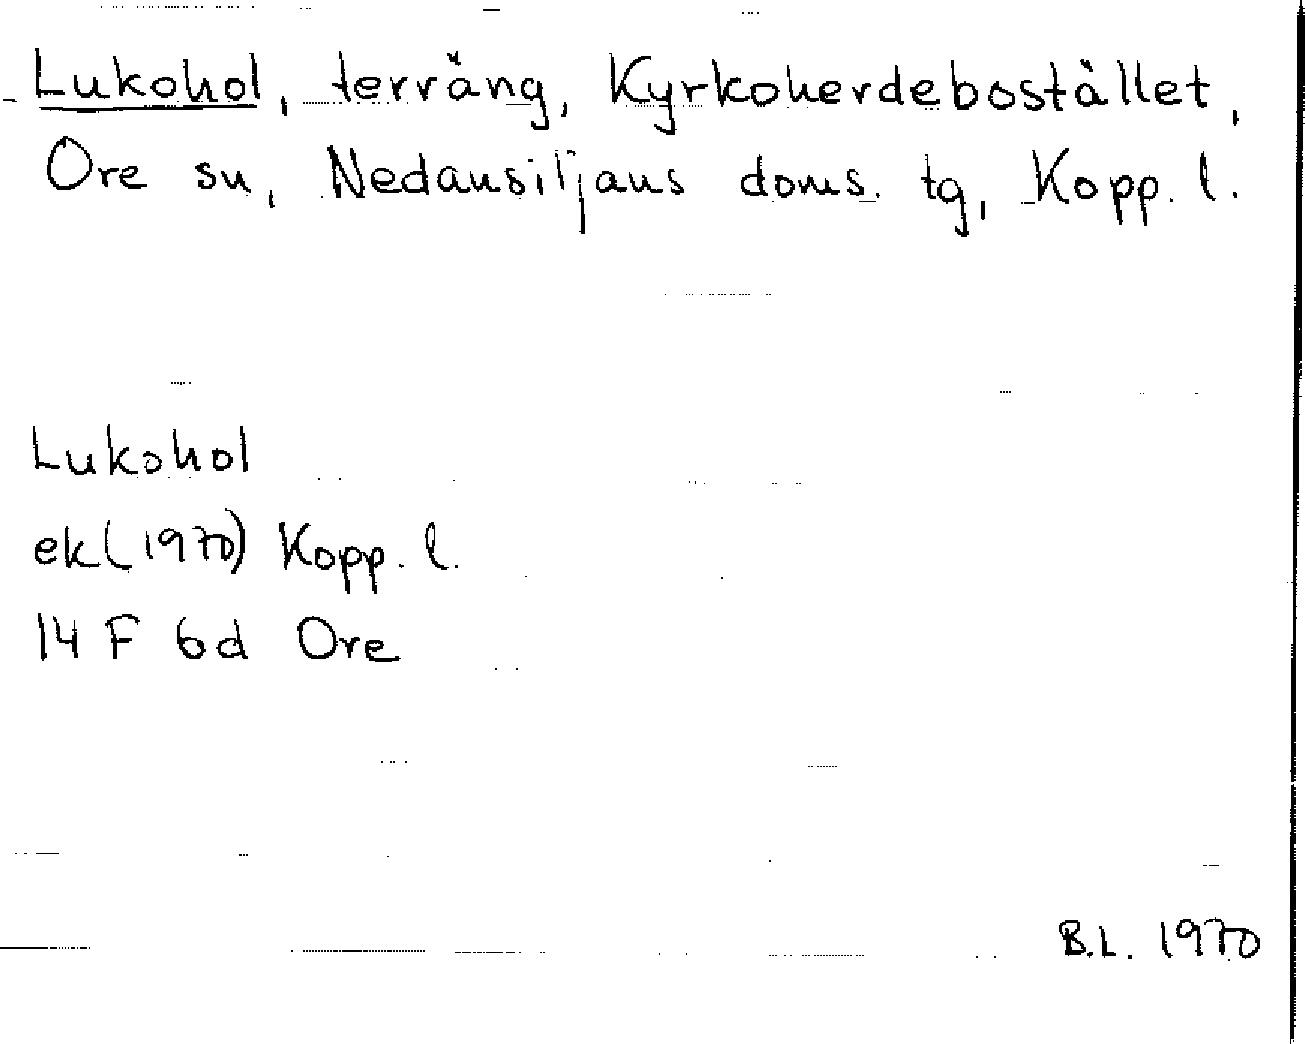 Lukohol, terräng, Kyrkoherdebostället,
Ore sn, Nedansiljans doms. tg, Kopp. l.
Lukohol
ek (1970) Kopp. l.
14 F 6d Ore
B.L. 1970